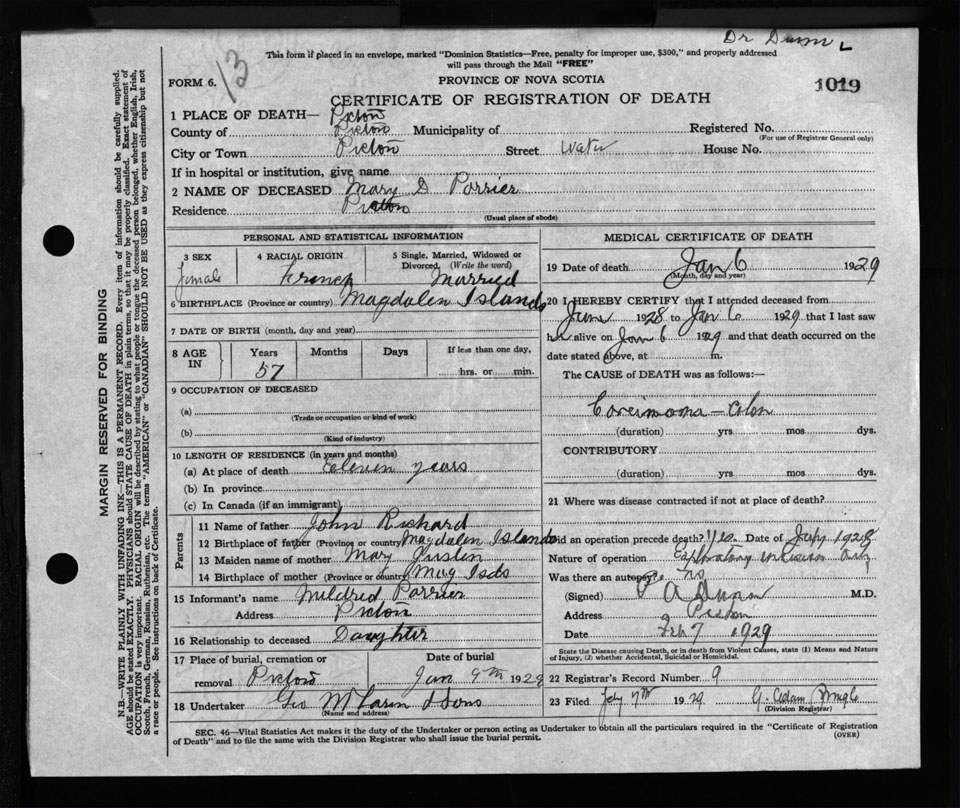 Dr Dunn
This form if placed in an envelope, marked "Dominion Statistics—Free, penalty for improper use, $300," and properly addressed
will pass through the Mail "FREE"
FORM 6. 13
PROVINCE OF NOVA SCOTIA
1019
CERTIFICATE OF REGISTRATION OF DEATH
1 PLACE OF DEATH— Pictou
County of Pictou Municipality of Registered No.
(For use of Registrar General only)
City or Town Pictou Street Water House No.
If in hospital or institution, give name
2 NAME OF DECEASED Mary D Porrier
Residence Pictou
(Usual place of abode)
PERSONAL AND STATISTICAL INFORMATION
3 SEX 4 RACIAL ORIGIN 5 Single, Married, Widowed or
Divorced (Write the word)
Female French Married
6 BIRTHPLACE (Province or country) Magdalen Islands
7 DATE OF BIRTH (month, day and year)
8 AGE IN Years Months Days If less than one day,
57 hrs. or min.
9 OCCUPATION OF DECEASED
(a)
(Trade or occupation or kind of work)
(b)
(Kind of industry)
10 LENGTH OF RESIDENCE (in years and months)
(a) At place of death Eleven years
(b) In province
(c) In Canada (if an immigrant)
Parents
11 Name of father John Richard
12 Birthplace of father (Province or country) Magdalen Islands
13 Maiden name of mother Mary
14 Birthplace of mother (Province or country) Mag Isds
15 Informant's name Mildred Porrier
Address Pictou
16 Relationship to deceased Daughter
17 Place of burial, cremation or Date of burial
removal Pictou Jan 9th 1929
18 Undertaker Geo McLaren & Sons
(Name and address)
MEDICAL CERTIFICATE OF DEATH
19 Date of death Jan 6 1929
(Month, day and year)
20 I HEREBY CERTIFY that I attended deceased from
June 1928 to Jan 6 1929 that I last saw
her alive on Jan 6 1929 and that death occurred on the
date stated above, at m.
The CAUSE of DEATH was as follows:—
Carcinoma — Colon
(duration) yrs mos dys.
CONTRIBUTORY
(duration) yrs mos dys.
21 Where was disease contracted if not at place of death?
Did an operation precede death? Yes. Date of July 1928
Nature of operation Exploratory incision only
Was there an autopsy? No
(Signed) A Dunn M.D.
Address Pictou
Date Feb 7 1929
State the Disease causing Death, or in death from Violent Causes, state (1) Means and Nature
of Injury, (2) whether Accidental, Suicidal or Homicidal.
22 Registrar's Record Number 9
23 Filed Feby 7th 1929
(Division Registrar)
SEC. 46—Vital Statistics Act makes it the duty of the Undertaker or person acting as Undertaker to obtain all the particulars required in the "Certificate of Registration
of Death" and to file the same with the Division Registrar who shall issue the burial permit.
(OVER)
MARGIN RESERVED FOR BINDING
N.B.—WRITE PLAINLY WITH UNFADING INK—THIS IS A PERMANENT RECORD. Every item of information should be carefully supplied.
AGE should be stated EXACTLY. PHYSICIANS should STATE CAUSE OF DEATH in plain terms, so that it may be properly classified. Exact statement of
OCCUPATION is very important. RACIAL ORIGIN will be described by stating to what people or tongue the deceased person belonged, whether English, Irish,
Scotch, French, German, Russian, Ruthenian, etc. The terms "AMERICAN" or "CANADIAN" SHOULD NOT BE USED as they express citizenship but not
a race or people. See instructions on back of Certificate.